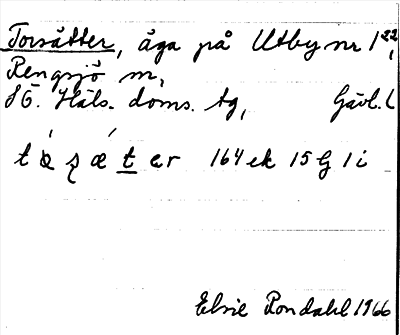 Torsätter, äga på Utby nr 1²²,
Rengsjö sn,
SÖ. Häls. doms. tg, Gävl. L
t ǫ̀ ʂ ǽ t er 164 ek 15 G 1 i
Elsie Rondahl 1966